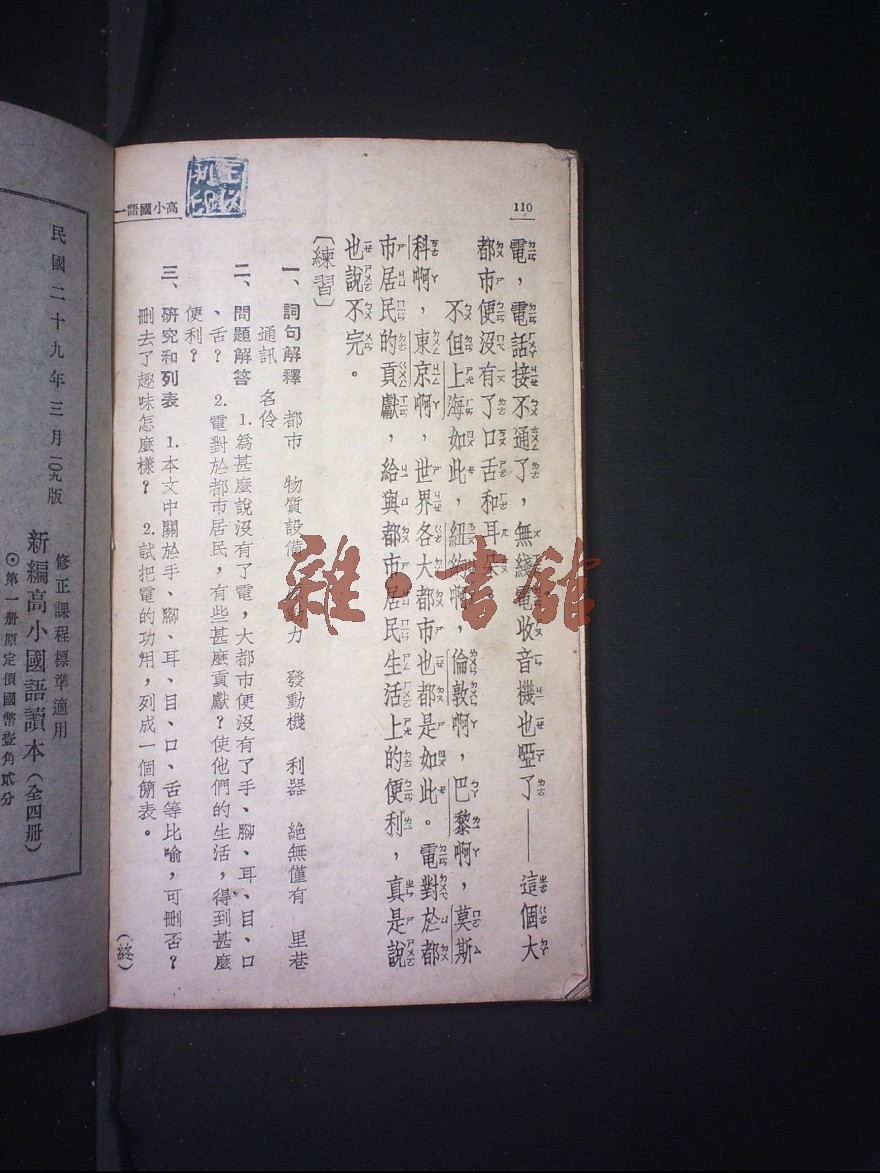 110
電，電話接不通了，無綫電收音機也啞了——這個大
都市便沒有了口舌和耳朵。
不但上海如此，紐約啊，倫敦啊，巴黎啊，莫斯
科啊，東京啊，世界各大都市也都是如此。電對於都
市居民的貢獻，給與都市居民生活上的便利，真是說
也說不完。
〔練習〕
一、詞句解釋　都市　物質設備　原動力　發動機　利器　絕無僅有　里巷
通訊　名伶
二、問題解答　1.爲甚麼說沒有了電，大都市便沒有了手、腳、耳、目、口
、舌？　2.電對於都市居民，有些甚麼貢獻？使他們的生活，得到甚麼
便利？
三、研究和列表　1.本文中關於手、腳、耳、目、口、舌等比喻，可刪否？
刪去了趣味怎麼樣？　2.試把電的功用，列成一個簡表。
（終）
高小國語一
雜·書館
修正課程標準適用
新編高小國語讀本（全四册）
⊙第一册原定價國幣壹角貳分
民國二十九年三月二〇九版